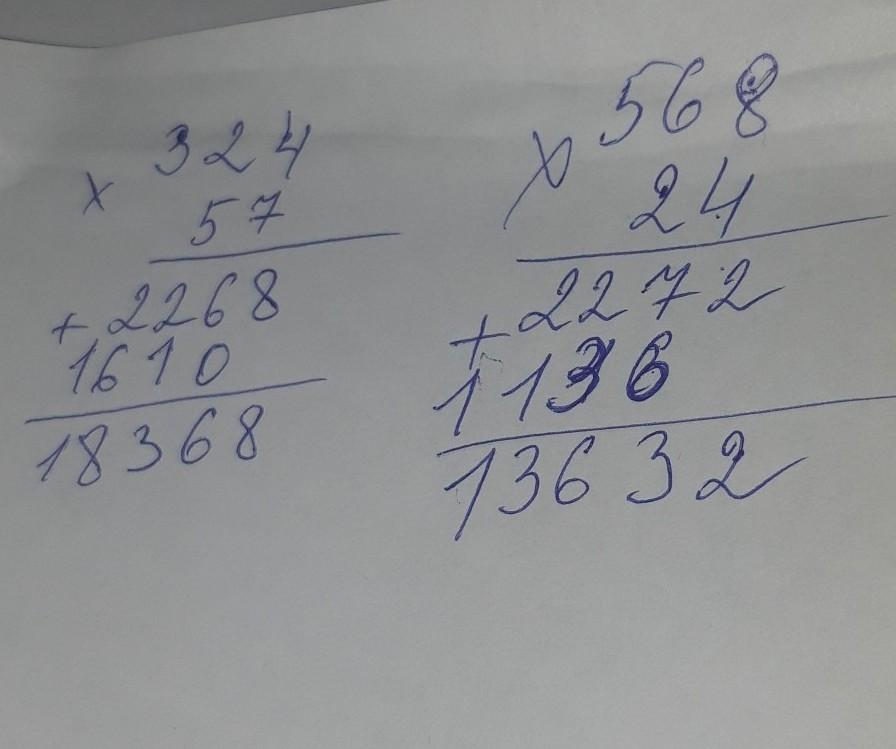 324
× 57
+ 2268
1610
18368
568
× 24
+ 2272
1136
13632